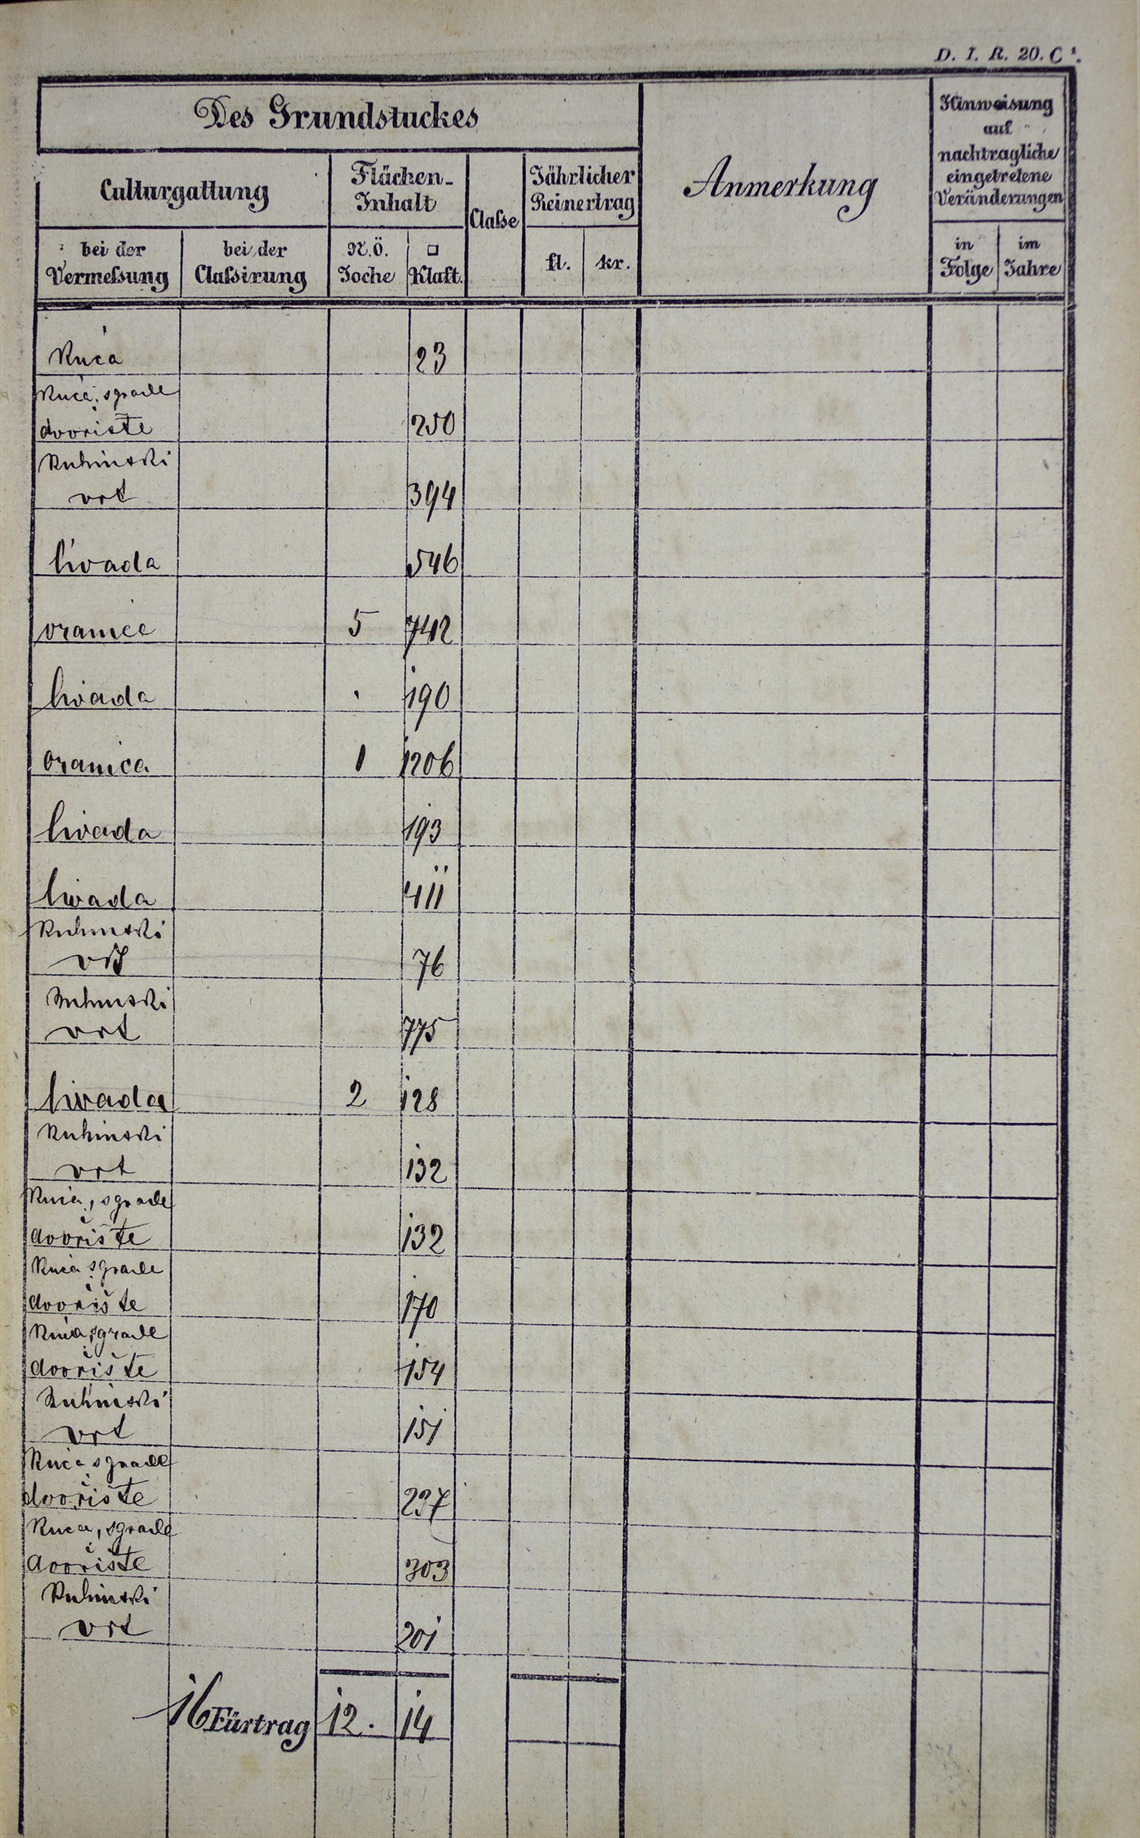 D. I. R. 20. C¹.
Des Grundstuckes
Anmerkung
Hinweisung
auf
nachtragliche
eingetretene
Veränderungen
Culturgattung
Flächen-
Inhalt
Classe
Jährlicher
Reinertrag
bei der
Vermessung
bei der
Classirung
N.Ö.
Joche
□
Klaft.
fl.
kr.
in
Folge
im
Jahre
Kuća 23
Kuća, sgrade
dvorište 250
Kuhinski
vrt 394
livada 546
oranice 5 742
livada . 190
oranica 1 1206
livada 193
livada 411
Kuhinski
vrt 76
Kuhinski
vrt 775
livada 2 128
Kuhinski
vrt 132
Kuća, sgrade
dvorište 132
Kuća sgrade
dvorište 170
Kuća, sgrade
dvorište 154
Kuhinski
vrt 151
Kuća sgrade
dvorište 237
Kuća, sgrade
dvorište 303
Kuhinski
vrt 201
16 Fürtrag 12. 14